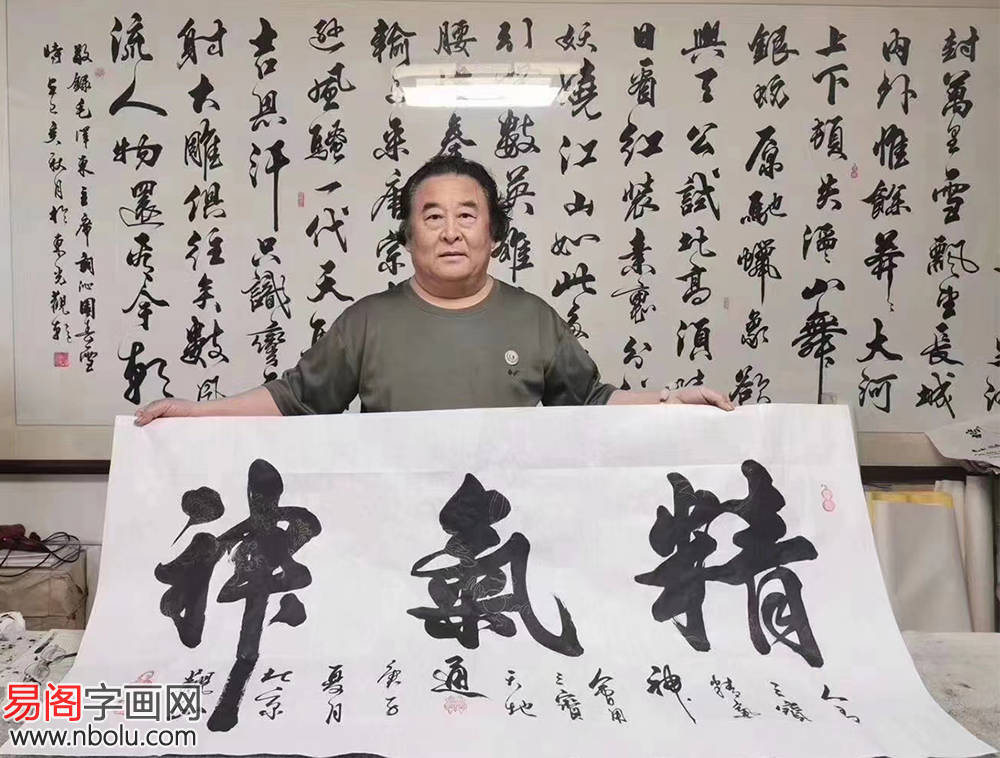 封萬里雪飄望長城
內外惟餘莽莽大河
上下頓失滔滔山舞
銀蛇原馳蠟象欲
與天公試比高須晴
日看紅裝素裹分外
妖嬈江山如此多
引 數英雄
腰 秦
輸文采唐宗
遜風騷一代天
吉思汗只識彎
射大雕俱往矣數風
流人物還看今朝
敬錄毛澤東主席詞沁園春雪
時在己亥秋月於東光觀
精氣神
人有三寶精氣神會用三寶天地通庚子夏月北京
易阁字画网
www.nbolu.com